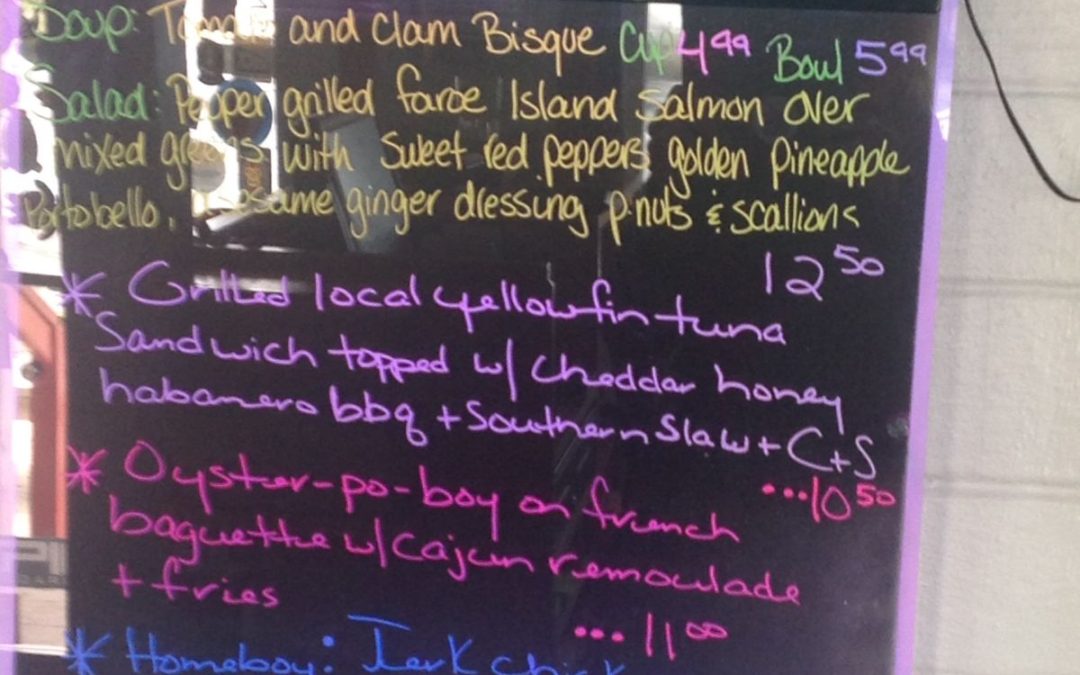 Soup: Tomato and Clam Bisque Cup 4.99 Bowl 5.99
Salad: Pepper grilled faroe Island Salmon Over
mixed greens with sweet red peppers golden pineapple
Portobello, sesame ginger dressing p.nuts & scallions
12.50
* Grilled local yellowfin tuna
Sandwich topped w/ cheddar honey
habanero bbq + Southern Slaw + C+S
...10.50
* Oyster-po-boy on french
baguette w/ Cajun remoulade
+ fries
...11.00
* Homeboy: Jerk